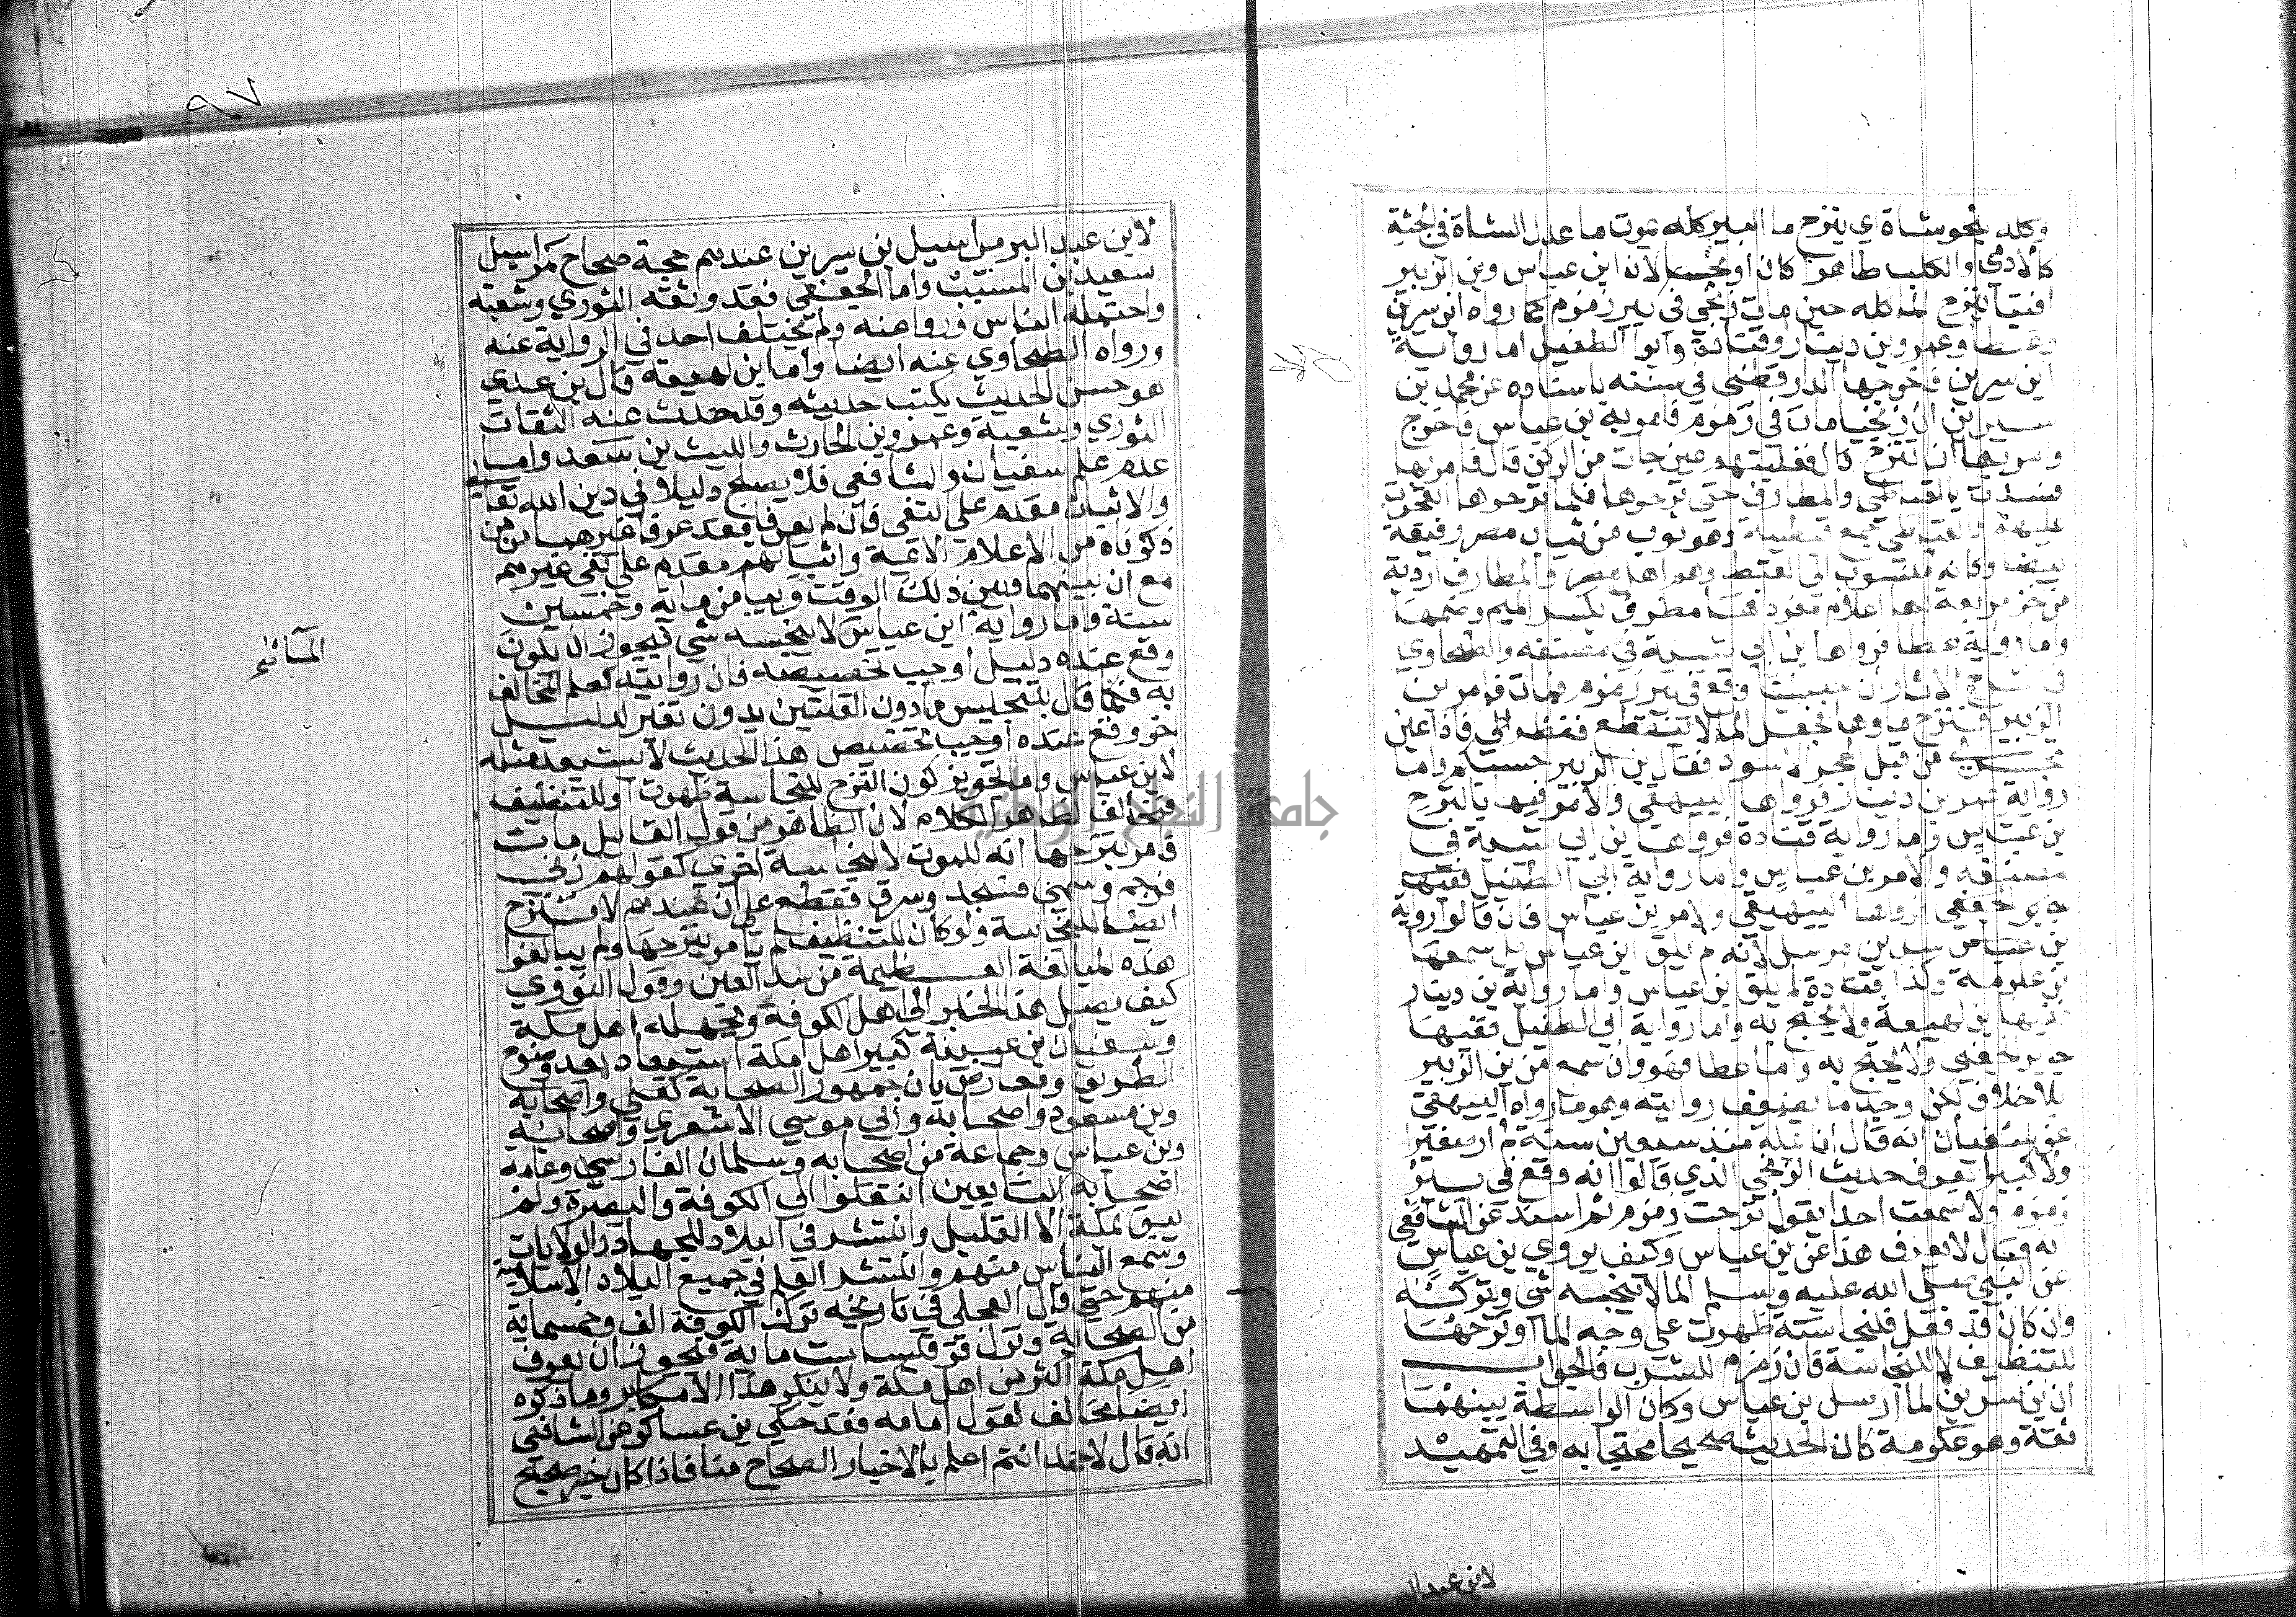 وكله نحو شاة اي ينزح ما البير كله بموت ما عدل الشاة في الجثة
كالادمي والكلب طاهرا كان او نجسا لان ابن عباس وبن الزبير
افتيا بنزح الما كله حين مات زنجي في بير زمزم كما رواه ابن سيرين
وعطا وعمرو بن دينار وقتادة وابو الطفيل اما رواية
ابن سيرين فاخرجها الدارقطني في سننه باسناده عن محمد بن
سيرين ان زنجيا مات في زمزم فامر به بن عباس فاخرج
وامر بها ان تنزح قال فغلبتهم عين جات من الركن قال فامر بها
فسدت بالقباطي والمطارف حتى نزحوها فلما نزحوها انفجرت
عليهم والقباطي جمع قبطية وهو ثوب من ثياب مصر رقيقة
بيضا وكانه منسوب الى القبط وهم اهل مصر والمطارف اردية
من خز مربعة لها اعلام مفردها مطرف بكسر الميم وضمها
واما رواية عطا فرواها بن ابي شيبة في مصنفه والطحاوي
في شرح الاثار ان حبشيا وقع في بير زمزم فمات فامر بن
الزبير فنزح ماوها فجعل الما لا ينقطع فنظر الي فاذا عين
تجري من قبل الحجر الاسود فقال بن الزبير حسبكم واما
رواية عمرو بن دينار فرواها البيهقي والامر فيها بالنزح
بن عباس واما رواية قتادة فرواها بن ابي شيبة في
مصنفه والامر بن عباس واما رواية ابي الطفيل ففيها
جابر الجعفي رواها البيهقي والامر بن عباس فان قالوا رواية
بن عباس بن سيرين مرسل لانه لم يلق ابن عباس بل سمعها
من عكرمة وكذا قتادة لم يلق بن عباس واما رواية بن دينار
ففيها بن لهيعة ولا يحتج به واما رواية ابي الطفيل ففيها
جابر الجعفي ولا يحتج به واما عطا فهو وان سمع من بن الزبير
بلا خلاف لكن وجد ما يضعف روايته وهو ما رواه البيهقي
عن سفيان انه قال انا بمكة منذ سبعين سنة لم ار صغيرا
ولا كبيرا يعرف حديث الزنجي الذي قالوا انه وقع في بير
زمزم ولا سمعت احدا يقول نزحت زمزم ثم اسند عن الشافعي
انه قال لا نعرف هذا عن بن عباس وكيف يروي بن عباس
عن النبي صلى الله عليه وسلم الما لا ينجسه شي ويتركه
وان كان قد فعل فلنجاسة ظهرت على وجه الما او نزحها
للتنظيف لا للنجاسة فان زمزم للشرب فالجواب
ان بن سيرين لما ارسل بن عباس وكان الواسطة بينهما
ثقة وهو عكرمة كان الحديث صحيحا محتجا به وفي التمهيد
لابن عبد البر
٩٧
لابن عبد البر مراسيل بن سيرين عندهم حجة صحاح كمراسيل
سعيد بن المسيب واما الجعفي فقد وثقه الثوري وشعبة
واحتمله الناس ورووا عنه ولم يختلف احد في الرواية عنه
ورواه الطحاوي عنه ايضا واما ابن لهيعة قال بن عدي
هو حسن الحديث يكتب حديثه وقد حدث عنه الثقات
الثوري وشعبة وعمرو بن الحارث والليث بن سعد واما
عدم علم سفيان والشافعي فلا يصلح دليلا في دين الله تعالى
والاثبات مقدم على النفي فان لم يعرفا فقد عرف غيرهما ممن
ذكرناه من الاعلام الائمة واثباتهم مقدم على نفي غيرهم
مع ان بينهما وبين ذلك الوقت قريبا من ماية وخمسين
سنة واما رواية ابن عباس لا ينجسه شي فيجوز ان يكون
وقع عنده دليل اوجب تخصيصه فان روايته كعلم المخالف
به فكما قال بتنجيس ما دون القلتين بدون تغير لدليل
اخر وقع عنده اوجب تخصيص هذا الحديث لا يستبعد مثله
لابن عباس وما تجويز كون النزح لنجاسة ظهرت او للتنظيف
فمخالف لظاهر الكلام لان الظاهر من قول القايل مات
فامر بنزحها انه للموت لا لنجاسة اخرى كقولهم زنى
فرجم وسهى فسجد وسرق فقطع على ان عندهم لا تنزح
ايضا للنجاسة ولو كان للتنظيف لم يامر بنزحها ولم يبالغوا
هذه المبالغة العظيمة من سد العين وقول النووي
كيف يصل هذا الخبر الى اهل الكوفة ويجهله اهل مكة
وسفيان بن عيينة كبير اهل مكة استبعاد بعد وضوح
الطريق ومعارض بان جمهور الصحابة كعلي واصحابه
وبن مسعود واصحابه وابي موسى الاشعري واصحابه
وبن عباس وجماعة من اصحابه وسلمان الفارسي وعامة
اصحابه التابعين انتقلوا الى الكوفة والبصرة ولم
يبق بمكة الا القليل وانتشر في البلاد للجهاد والولايات
وسمع الناس منهم وانتشر العلم في جميع البلاد الاسلامية
منهم حتى قال العجلي في تاريخه نزل الكوفة الف وخمسماية
من الصحابة ونزل قرقيسا ست ماية فيجوز ان يعرف
اهل مكة اكثر من اهل مكة ولا ينكر هذا الا مكابر وما ذكره
ايضا مخالف لقول امامه فقد حكى بن عساكر عن الشافعي
انه قال لاحمد انتم اعلم بالاخبار الصحاح منا فاذا كان خبر صحيح
جامعة